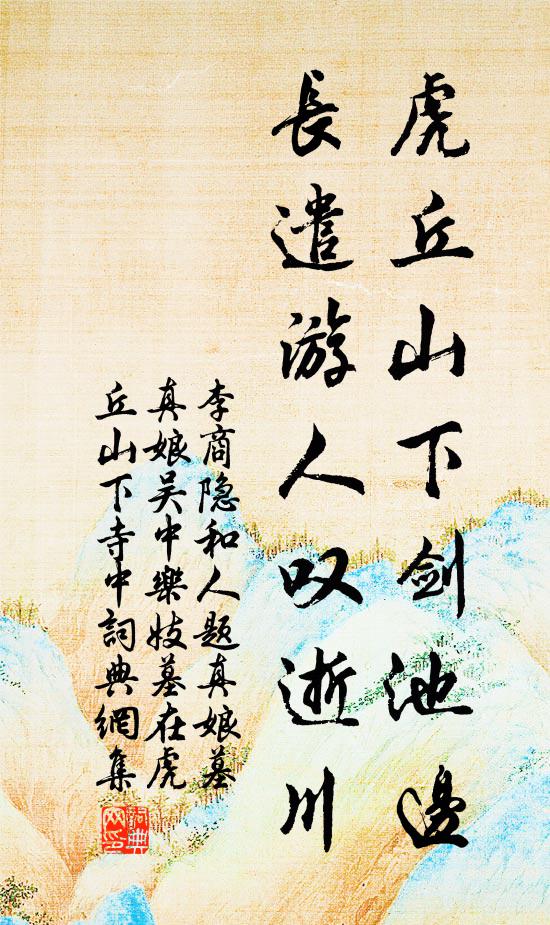 虎丘山下剑池邊
長遣游人叹逝川
李商隐和人題真娘墓
真娘吴中樂妓墓在虎
丘山下寺中詞典網集
詞典
网印